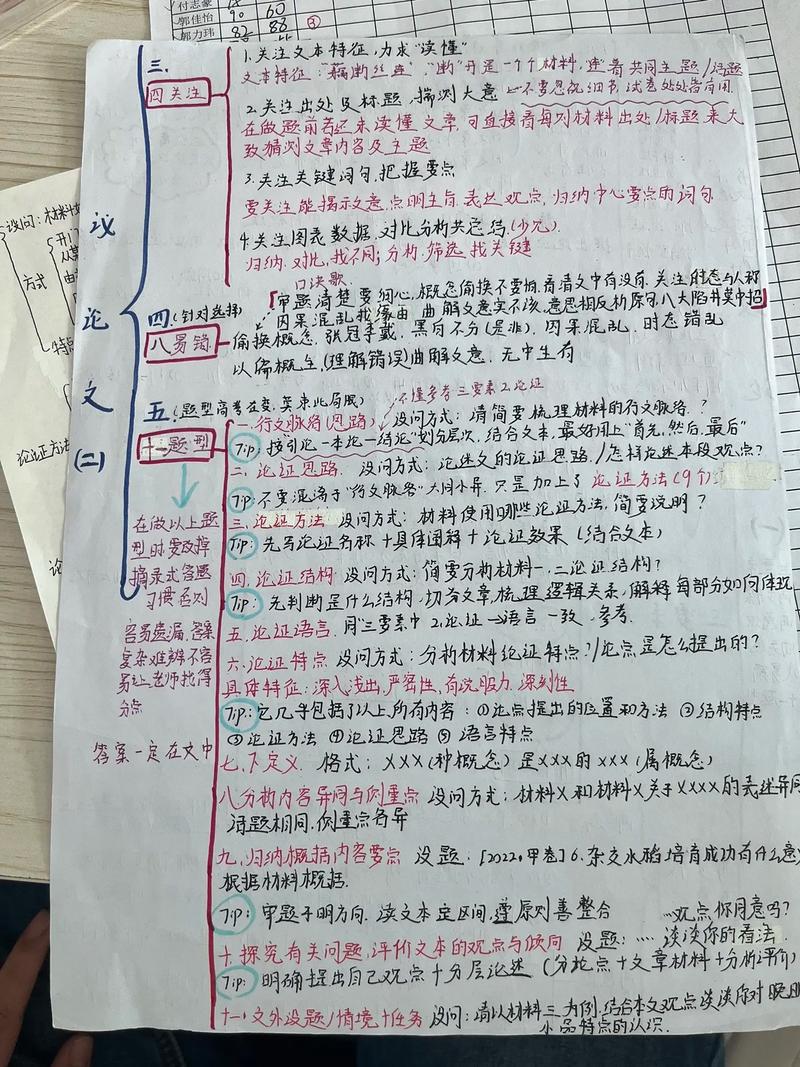 付志豪
郭佳怡 90 60
郭力玮 82 88
③
设问:材料
方式
特点
论证方法
议论文(二)
三.
四关注
1.关注文本特征,力求"读懂"
文本特征:"藕断丝连","断"开是一个个材料,连着共同主题/话题
2.关注出处及标题,揣测大意
不要忽视细节,试卷处处皆有用
在做题前若还未读懂文章,可直接看每则材料出处/标题来大
致猜测文章内容及主题
3.关注关键词句,把握要点
要关注能揭示文意.点明主旨.表达观点,归纳中心要点的词句.
4.关注图表数据.对比分析共总结.(少见).
归纳.对比,找不同;分析.筛选.找关键
口诀歌.
四.(针对选择)
八易错
审题清楚要细心,概念偷换不要怕.看清文中有没有.关注时态与人称
因果混乱找缘由.曲解文意实不该.意思相反析原句.八大陷井莫中招
偷换概念,张冠李戴.黑白不分(是非).因果混乱.时态错乱
以偏概全,(理解错误)曲解文意.无中生有
五.(题型高考在变,莫束此局限)
十一题型
不懂参考三要素2.论证
一.行文脉络(思路) 设问方式:请简要梳理材料的行文脉络.?
Tip:按"引论—本论—结论"划分层次,结合文本,最好用上"首先,然后,最后"
二.论证思路. 设问方式:论述文的论证思路./怎样论述本段观点?
Tip:不要混淆于"行文脉络"大同小异.只是加上了论证方法(9个)
三.论证方法 设问方式:材料使用哪些论证方法,简要说明?
Tip:先写论证名称+具体阐释+论证效果(结合文本)
四.论证结构. 设问方式:简要分析材料一.二论证结构?
Tip:先判断是什么结构,切分文章,梳理逻辑关系,解释每部分如何体现
五.论证语言. 用"三要素中2.论证→语言一致.参考.
六.论证特点 设问方式:分析材料论证特点?/论点是怎么提出的?
具体特征:深入浅出,严密性,有说服力.深刻性
Tip:它几乎包括了以上所有内容:①论点提出的位置和方法 ②结构特点
③论证方法 ④论证思路 ⑤语言特点
七.下定义. 格式:XXX(种概念)是XXX的XXX(属概念)
八分析内容异同与侧重点 设问方式:材料X和材料X关于XXXX的表述异同
话题相同,侧重点各异
九.归纳概括内容要点 设题:[2022.甲卷]6.杂交水稻培育成功有什么意
根据材料概括.
Tip:审题干明方向.读文本定区间,遵原则善整合
十.探究有关问题,评价文本的观点与倾向 设题:……观点你同意吗?
……谈谈你的看法.
Tip:明确提出自己观点+分层论述(分论点+文章材料+分析评价)
十一.文外设题/情境+任务 设问:请以材料三为例.结合本文观点谈谈你对晚明
小品特点的认识.
在做以上题
型时要改掉
摘录式答题
习惯否则
容易遗漏,答案
复杂难辨不容
易让老师找得
分点
答案一定在文中